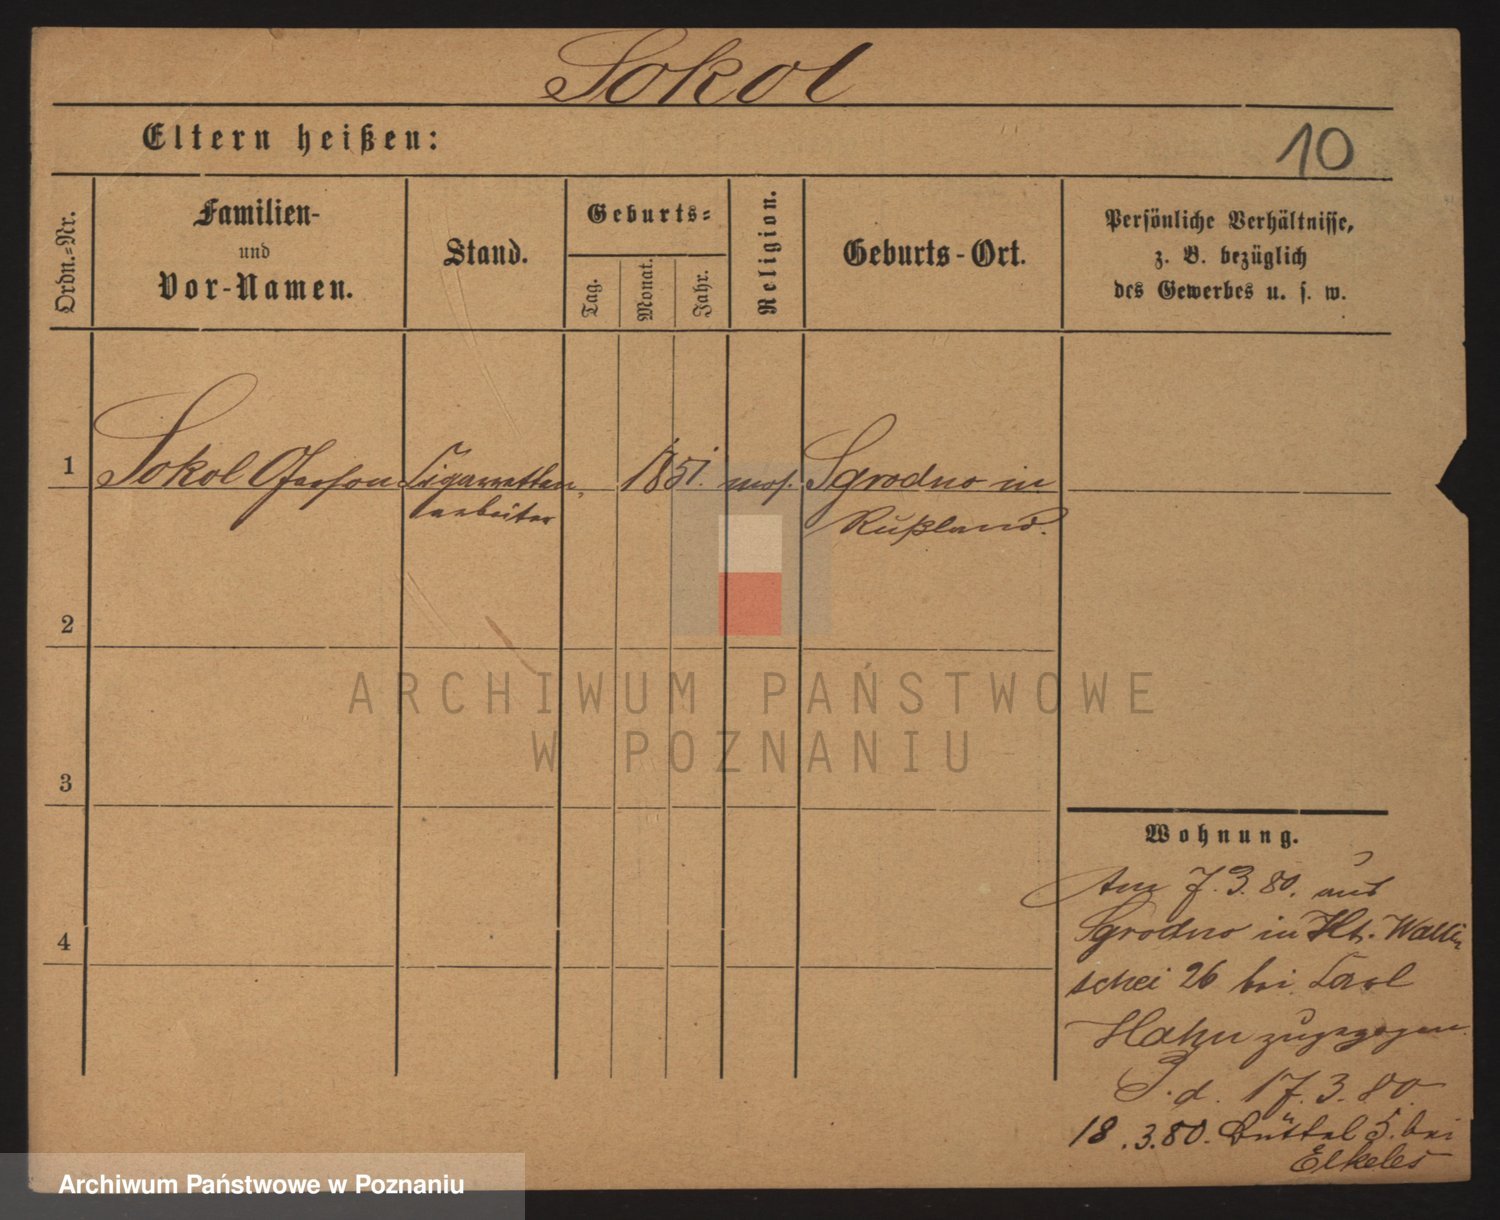 Sokol
Eltern heißen:
10
Ordn.-Nr.
Familien-
und
Vor-Namen.
Stand.
Geburts-
Tag.
Monat.
Jahr.
Religion.
Geburts-Ort.
Persönliche Verhältnisse,
z. B. bezüglich
des Gewerbes u. s. w.
1
Sokol Gerson
Cigarretten-
arbeiter
1851.
mos.
Sgrodno in
Rußland.
2
3
4
Wohnung.
Am 7.3.80. aus
Sgrodno in Kl. Walli
schei 26 bei Carl
Hahn zugezogen.
P. d. 17.3.80.
18.3.80. Büttel 5. bei
Elkeles
ARCHIWUM PAŃSTWOWE
W POZNANIU
Archiwum Państwowe w Poznaniu